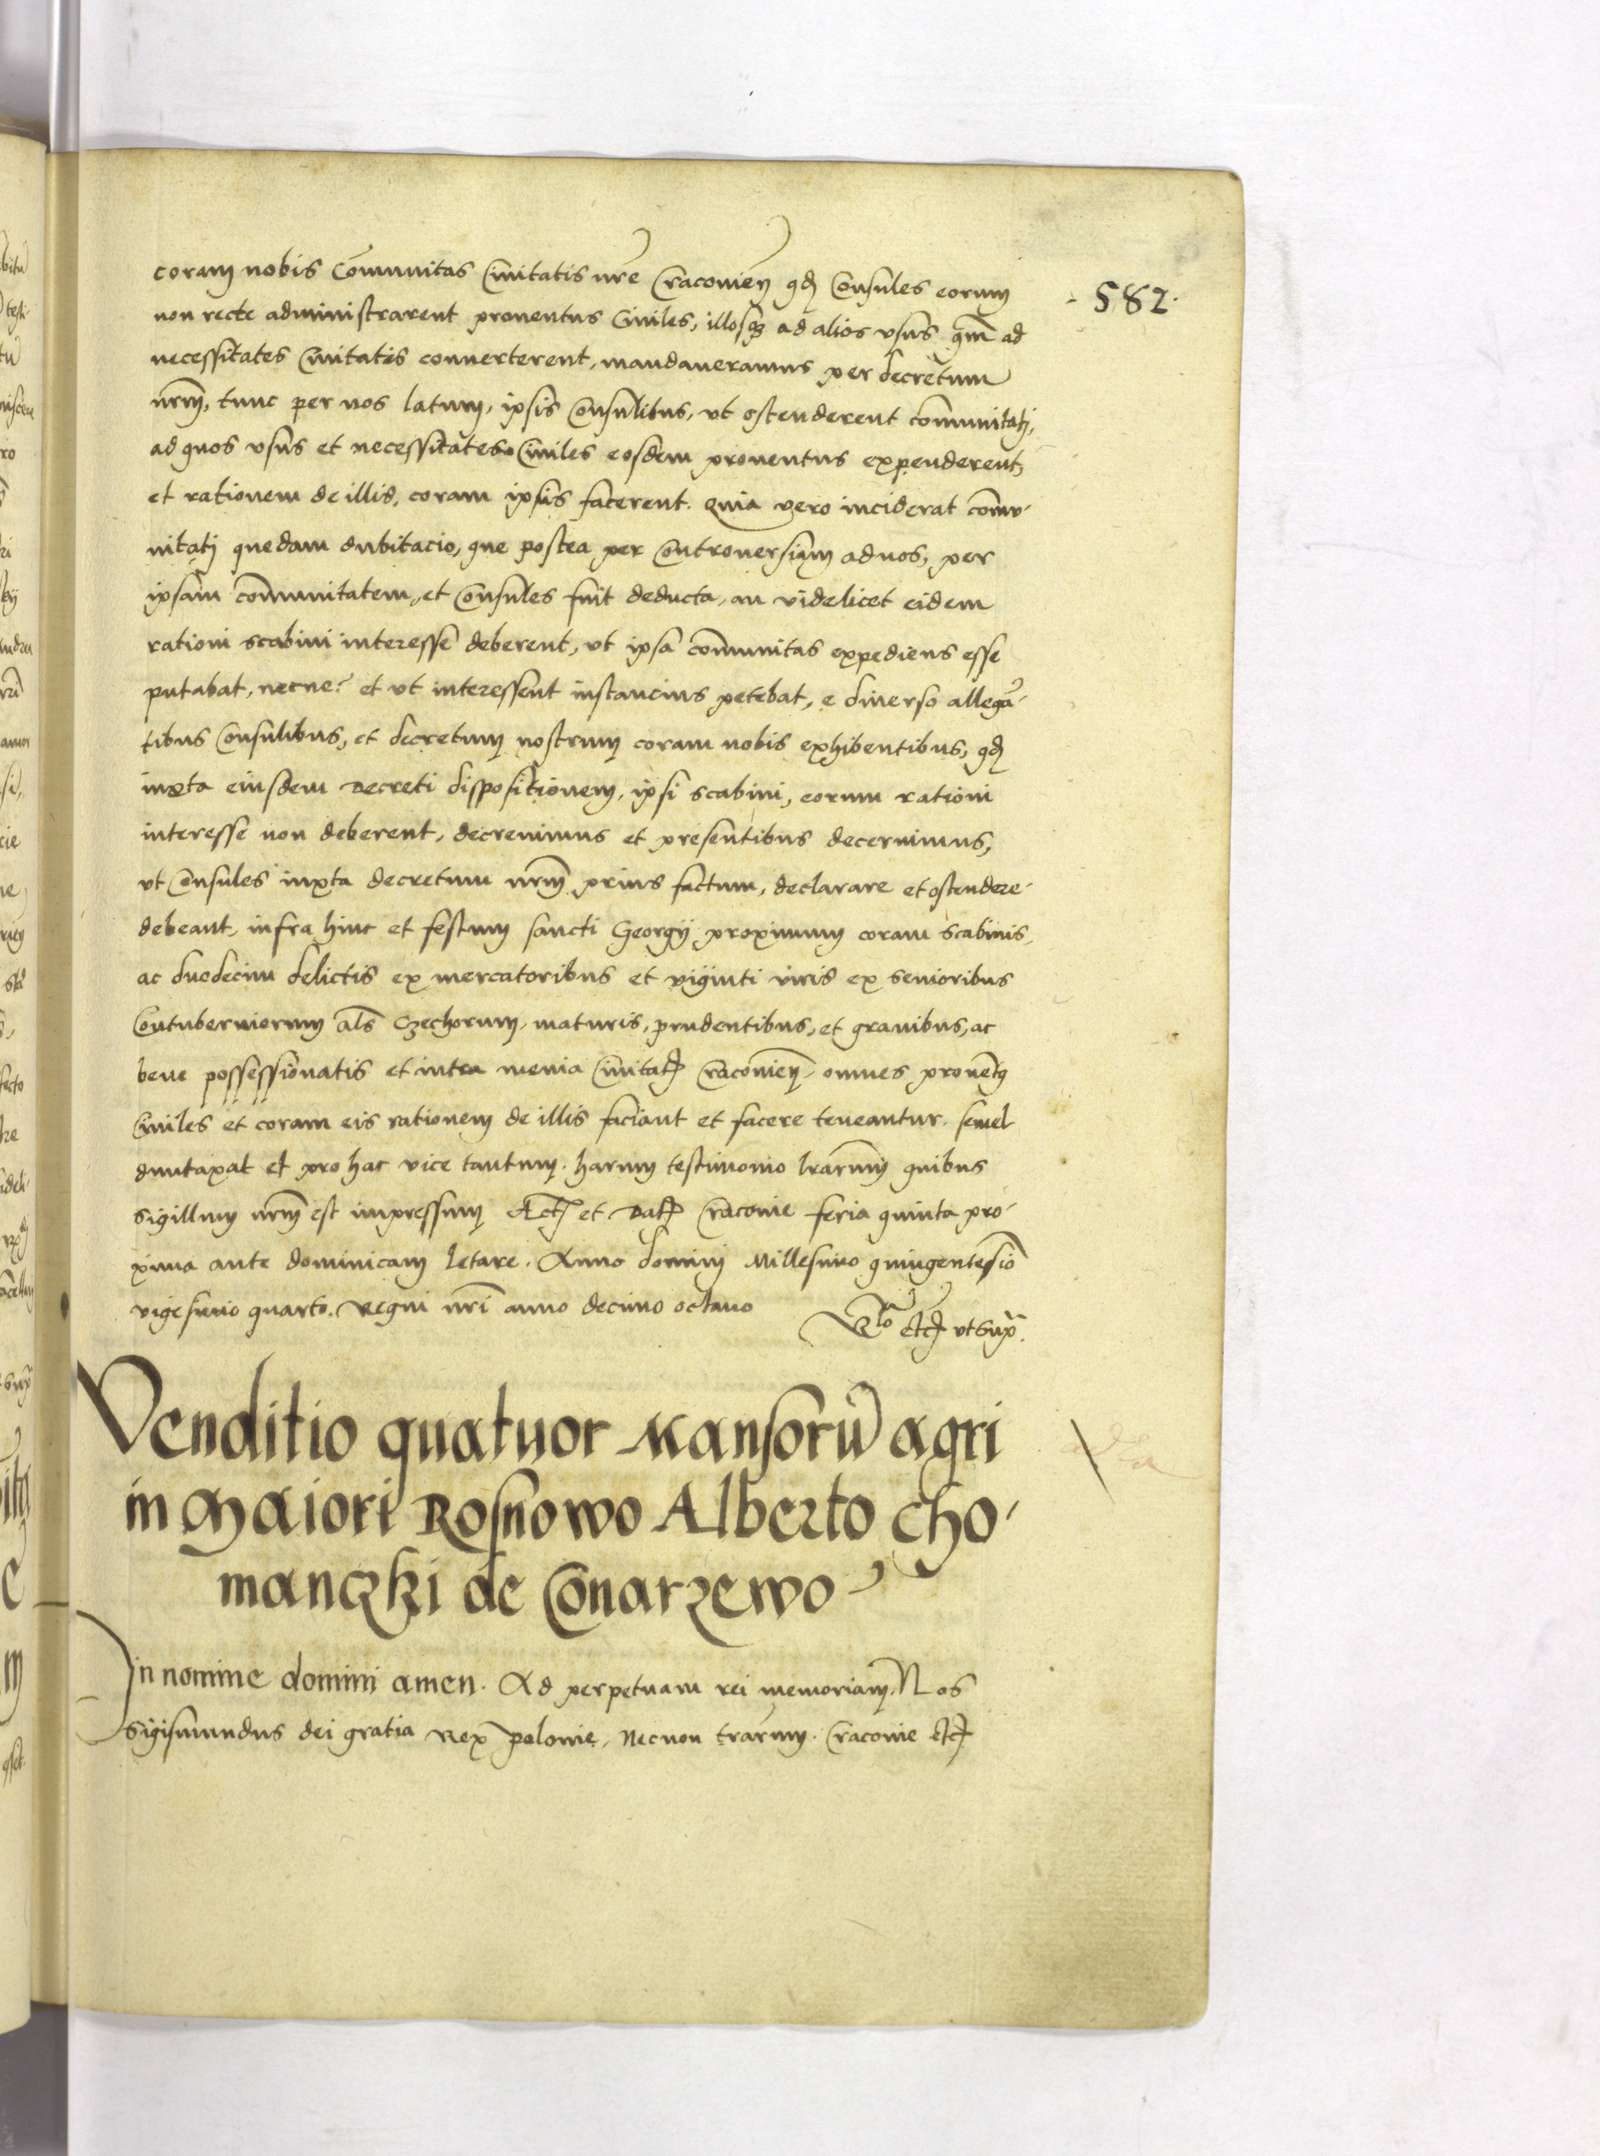 coram nobis Comunitas Civitatis nr̃e Cracovien̄ qđ Consules eorum
- 582 -
non recte administrarent proventus Civiles, illosq3 ad alios usus qm̃ ad
necessitates Civitatis converterent, mandaveramus per decretum
nr̃m, tunc per nos latum, ipsis Consulibus, ut ostenderent com̃unitati,
ad quos usus et necessitates Civiles eosdem proventus expenderent,
et rationem de illis, coram ipsis facerent. Quia vero inciderat com̃u-
nitati quedam dubitacio, que postea per Controversiam ad nos, per
ipsam com̃unitatem, et Consules fuit deducta, an videlicet eidem
rationi scabini interesse deberent, ut ipsa com̃unitas expediens esse
putabat, necne? et ut interessent instancius petebat, e diverso allegã-
tibus Consulibus, et decretum nostrum coram nobis exhibentibus, qđ
iuxta eiusdem Decreti dispositionem, ipsi scabini, eorum rationi
interesse non deberent, decrevimus et presentibus decernimus,
ut Consules iuxta decretum nr̃m prius factum, declarare et ostendere
debeant, infra hinc et festum sancti Georgij proximum coram scabinis,
ac duodecim delictis ex mercatoribus et viginti viris ex senioribus
Contuberniorum als̃ Czechorum, maturis, prudentibus, et gravibus, ac
bene possessionatis et intra menia Civitat̃ Cracovien̄, omnes provent9
Civiles et coram eis rationem de illis faciant et facere teneantur. semel
dumtaxat et pro hac vice tantum. harum testimonio lr̃arum quibus
sigillum nr̃m est impressum Act̃ et Dat̃ Cracovie feria quinta pro-
xima ante dominicam letare. Anno domini Millesimo quingentesiõ
vigesimo quarto. Regni nr̃i anno decimo octavo
Rlõ etc̃ ut sup̃.
Venditio quatuor Mansorũ agri
in Maiori Rosnowo Alberto Cho-
manczki de Conarzewo
In nomine domini amen. Ad perpetuam rei memoriam. Nos
Sigismundus dei gratia Rex polonie, Necnon tr̃arum. Cracovie etc̃